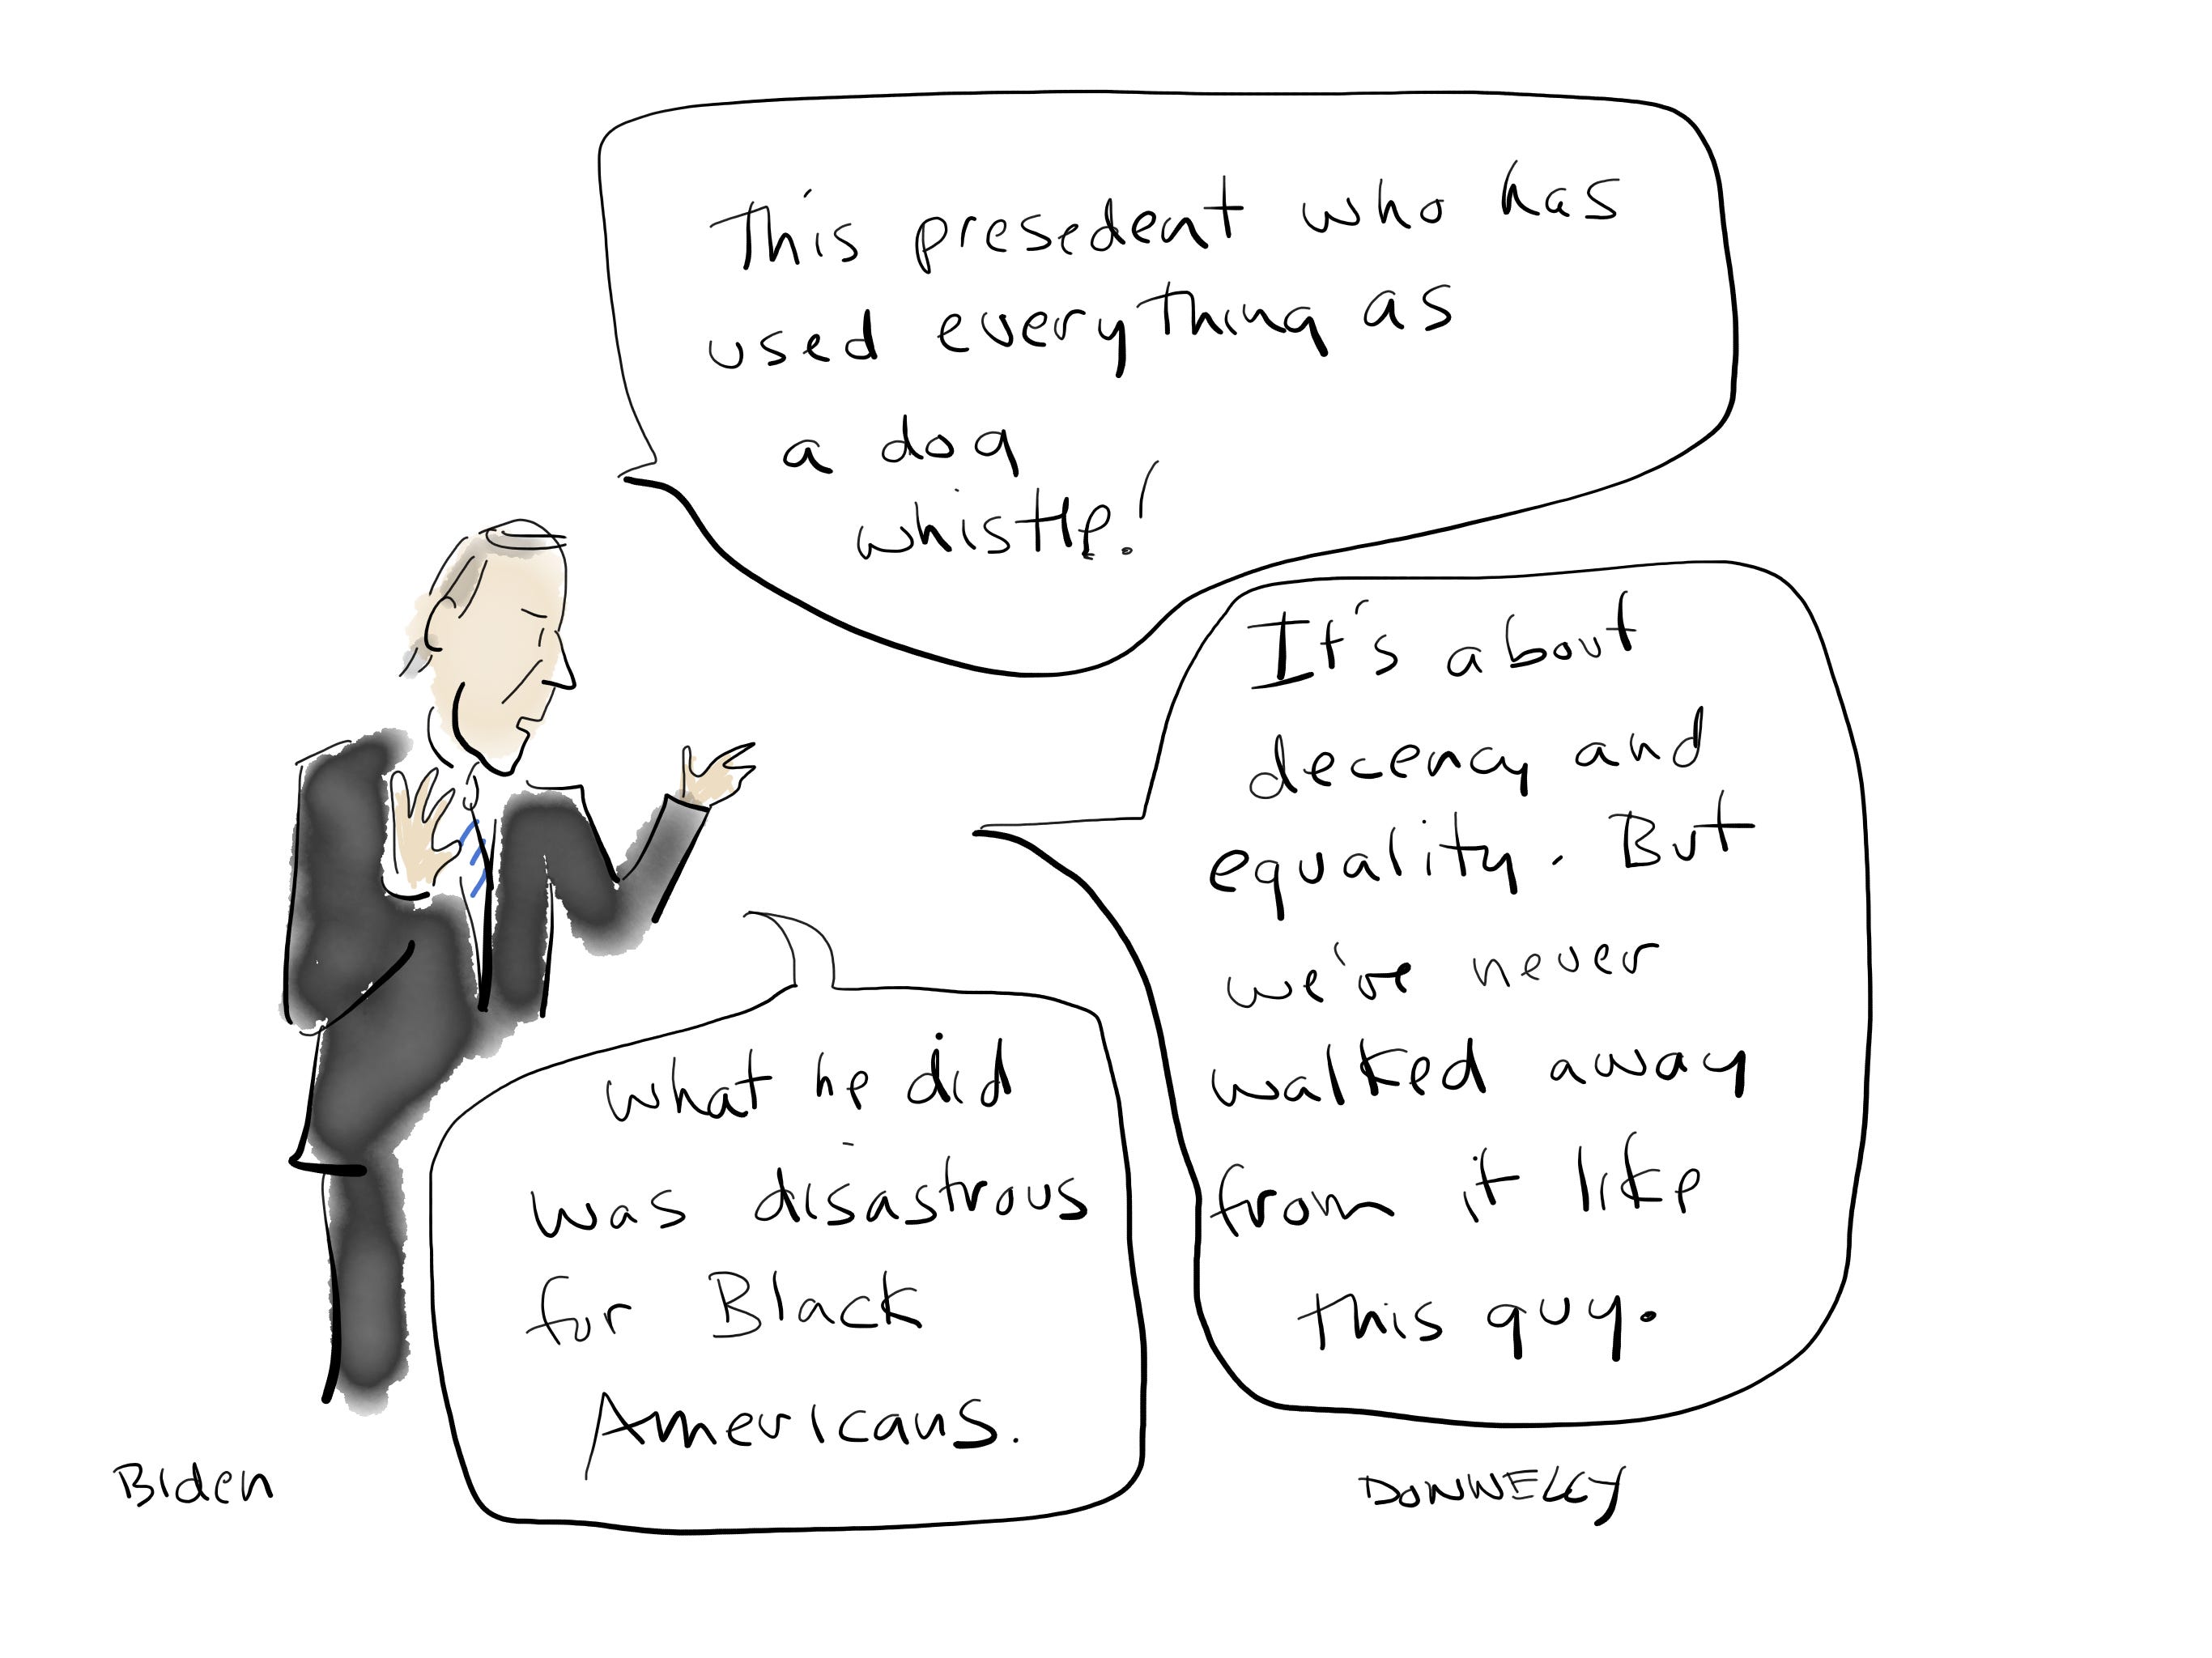 This presedent who has
used everything as
a dog
whistle!
It's about
decency and
equality. But
we've never
walked away
from it like
this guy.
what he did
was disastrous
for Black
Americans.
Biden
DONNELLY